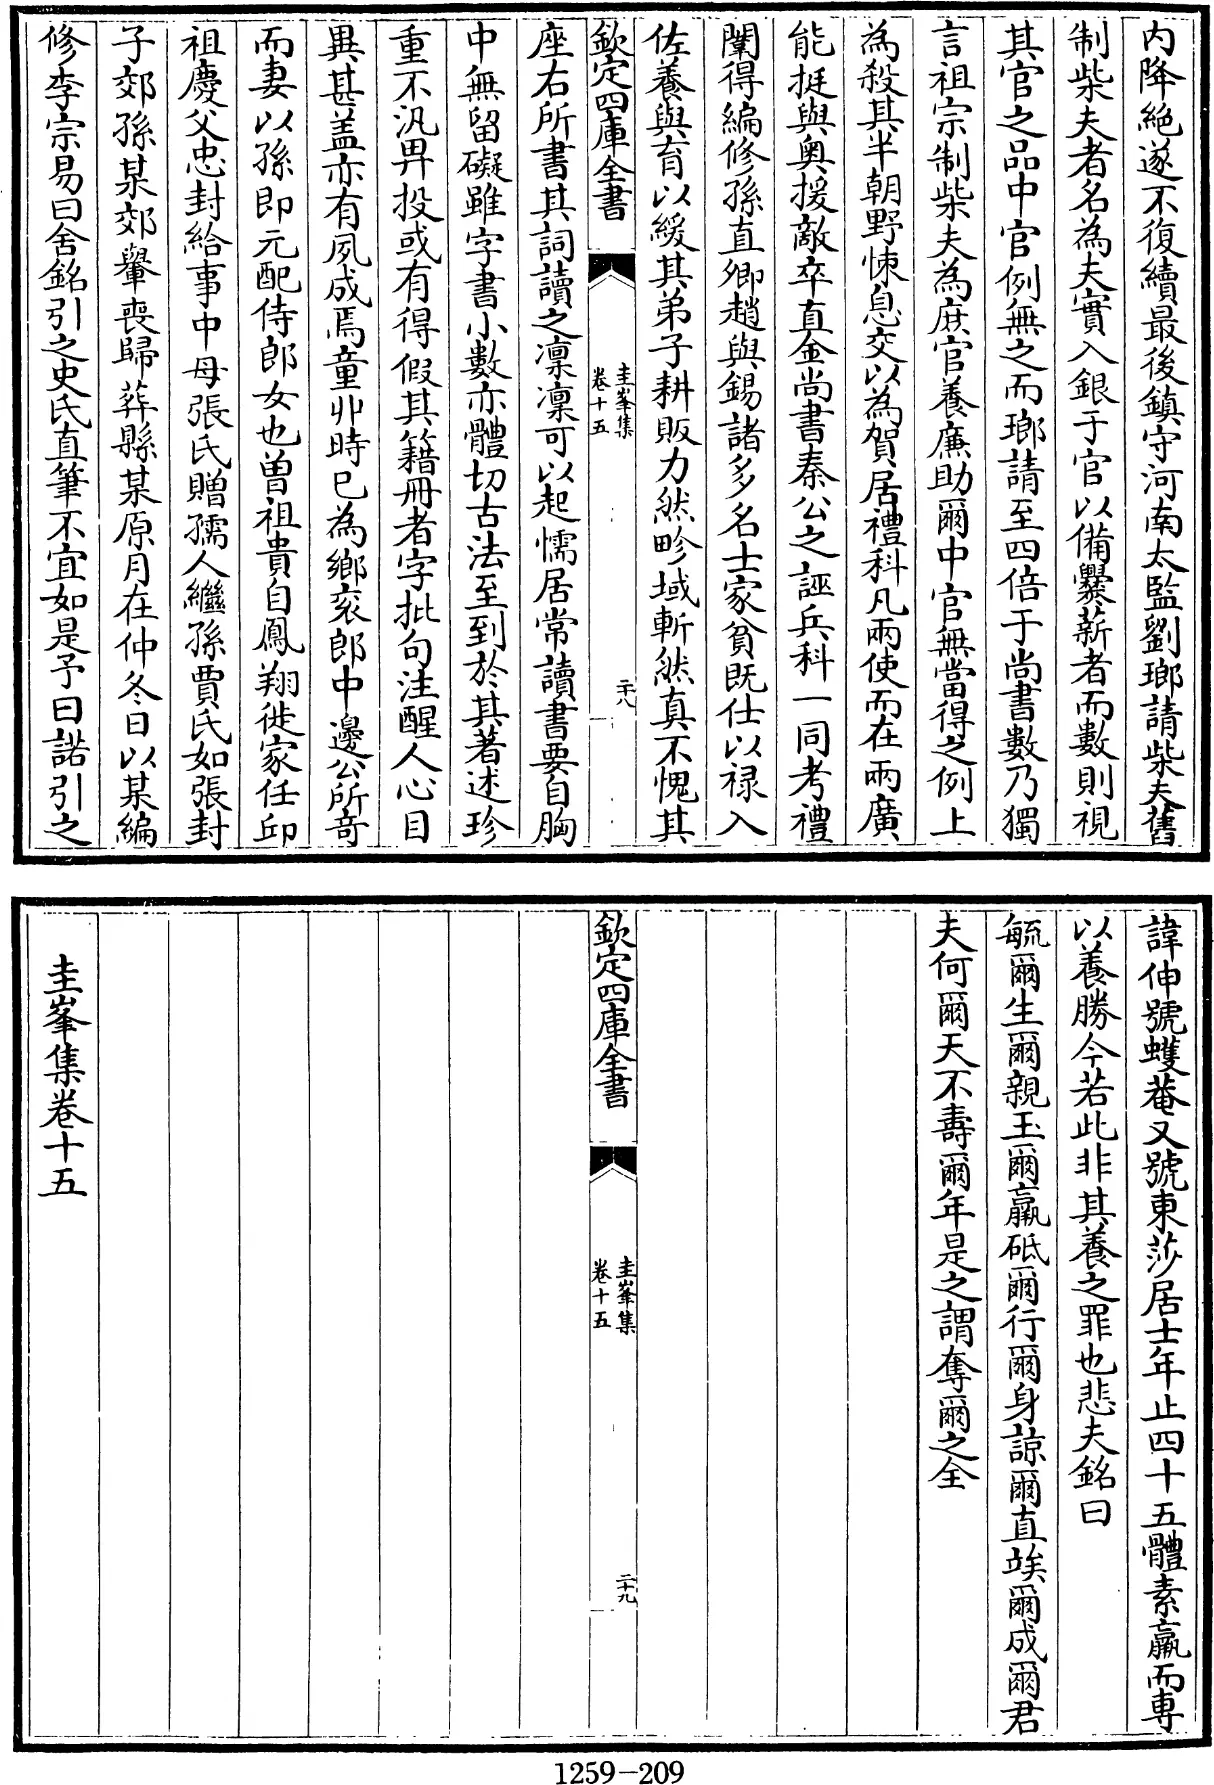 内降絶遂不復續最後鎮守河南太監劉瑯請柴夫舊
制柴夫者名為夫實入銀于官以備爨薪者而數則視
其官之品中官例無之而瑯請至四倍于尚書數乃獨
言祖宗制柴夫為庶官養廉助爾中官無當得之例上
為殺其半朝野悚息交以為賀居禮科凡兩使而在兩廣
能挺與奥援敵卒直金尚書秦公之誣兵科一同考禮
闈得編修孫直卿趙與錫諸多名士家貧既仕以禄入
佐養與育以緩其弟子耕販力然畛域斬然真不愧其
欽定四庫全書
圭峯集
卷十五
二十八
座右所書其詞讀之凛凛可以起懦居常讀書要自胸
中無留礙雖字書小數亦體切古法至到於其著述珍
重不汎畀投或有得假其籍冊者字批句注醒人心目
異甚盖亦有夙成焉童丱時已為鄉衮郎中邊公所竒
而妻以孫即元配侍郎女也曾祖貴自鳳翔徙家任邱
祖慶父忠封給事中母張氏贈孺人繼孫賈氏如張封
子郊孫某郊轝喪歸葬縣某原月在仲冬日以某編
修李宗易曰舍銘引之史氏直筆不宜如是予曰諾引之
諱伸號蠖菴又號東莎居士年止四十五體素羸而專
以養勝今若此非其養之罪也悲夫銘曰
毓爾生爾親玉爾羸砥爾行爾身諒爾直竢爾成爾君
夫何爾天不壽爾年是之謂奪爾之全
欽定四庫全書
圭峯集
卷十五
二十九
圭峯集卷十五
1259-209